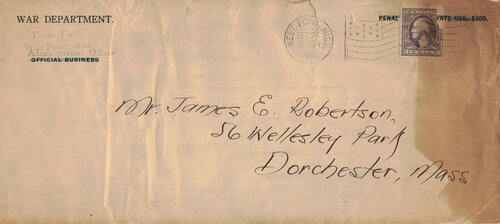 WAR DEPARTMENT.
Payne Field
West Point, Miss.
Administrative Officer
OFFICIAL BUSINESS
WEST POINT, MISS.
DEC 24
PENAL
ATE USE, $300.
3 CENTS 3
Mr. James E. Robertson,
56 Wellesley Park
Dorchester, Mass